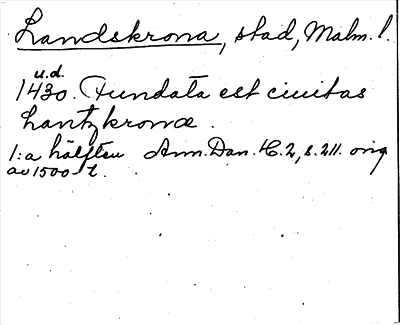 Landskrona, stad, Malm. l.
u.d.
1430. Fundata est ciuitas
Lantzkronæ.
1:a hälften Ann. Dan. H. 2, s. 211. orig
av 1500-t.